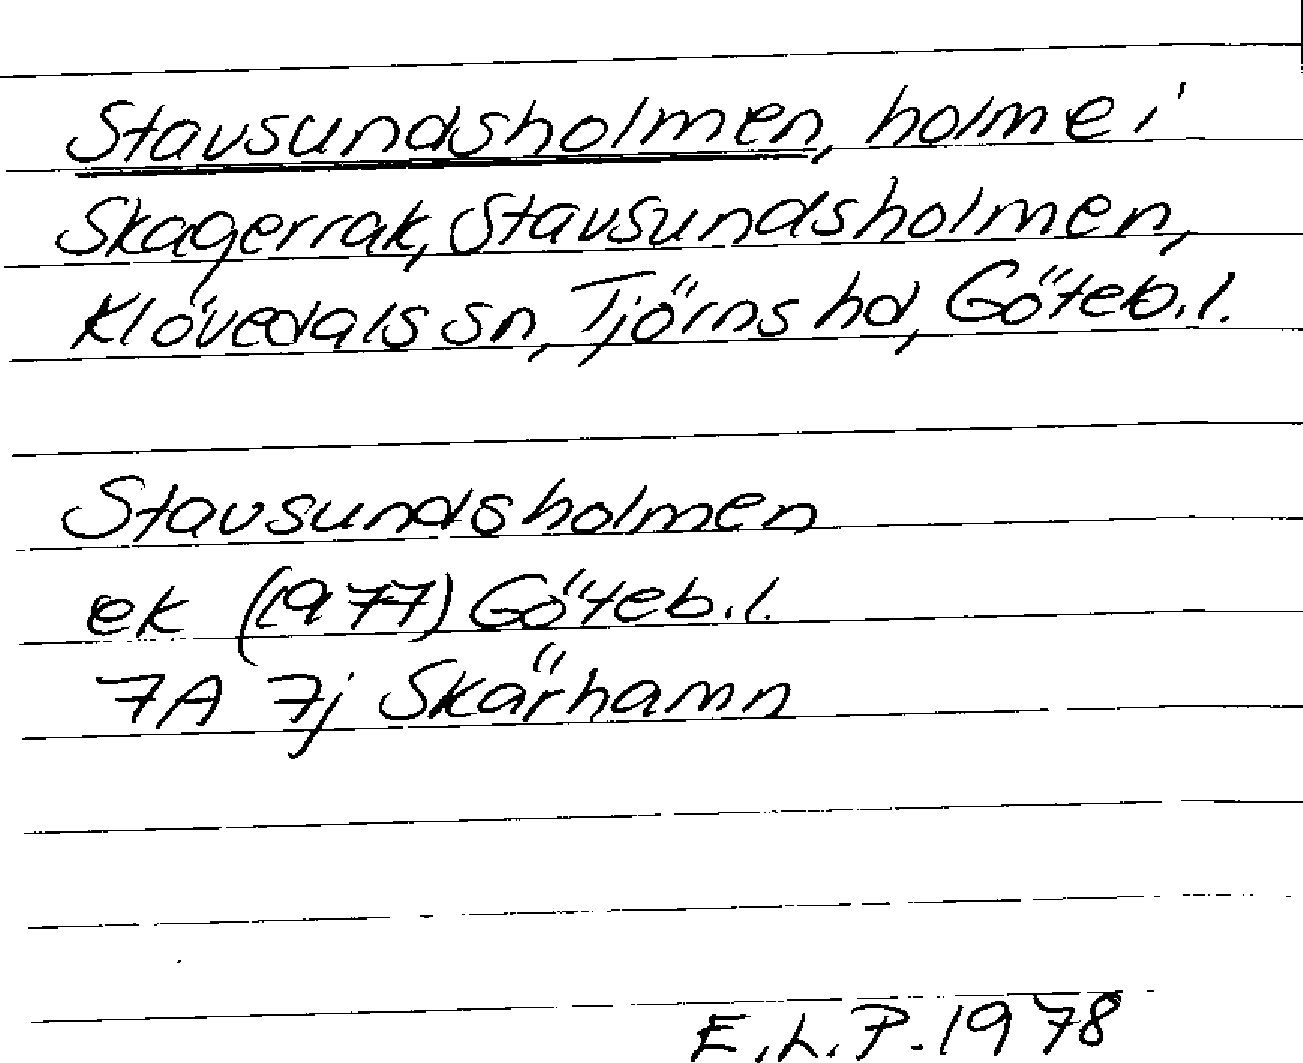 Stavsundsholmen, holme i
Skagerrak, Stavsundsholmen,
Klövedals sn, Tjörns hd, Göteb.l.
Stavsundsholmen
ek (1977) Göteb.l.
7A 7j Skärhamn
E.L.P. 1978